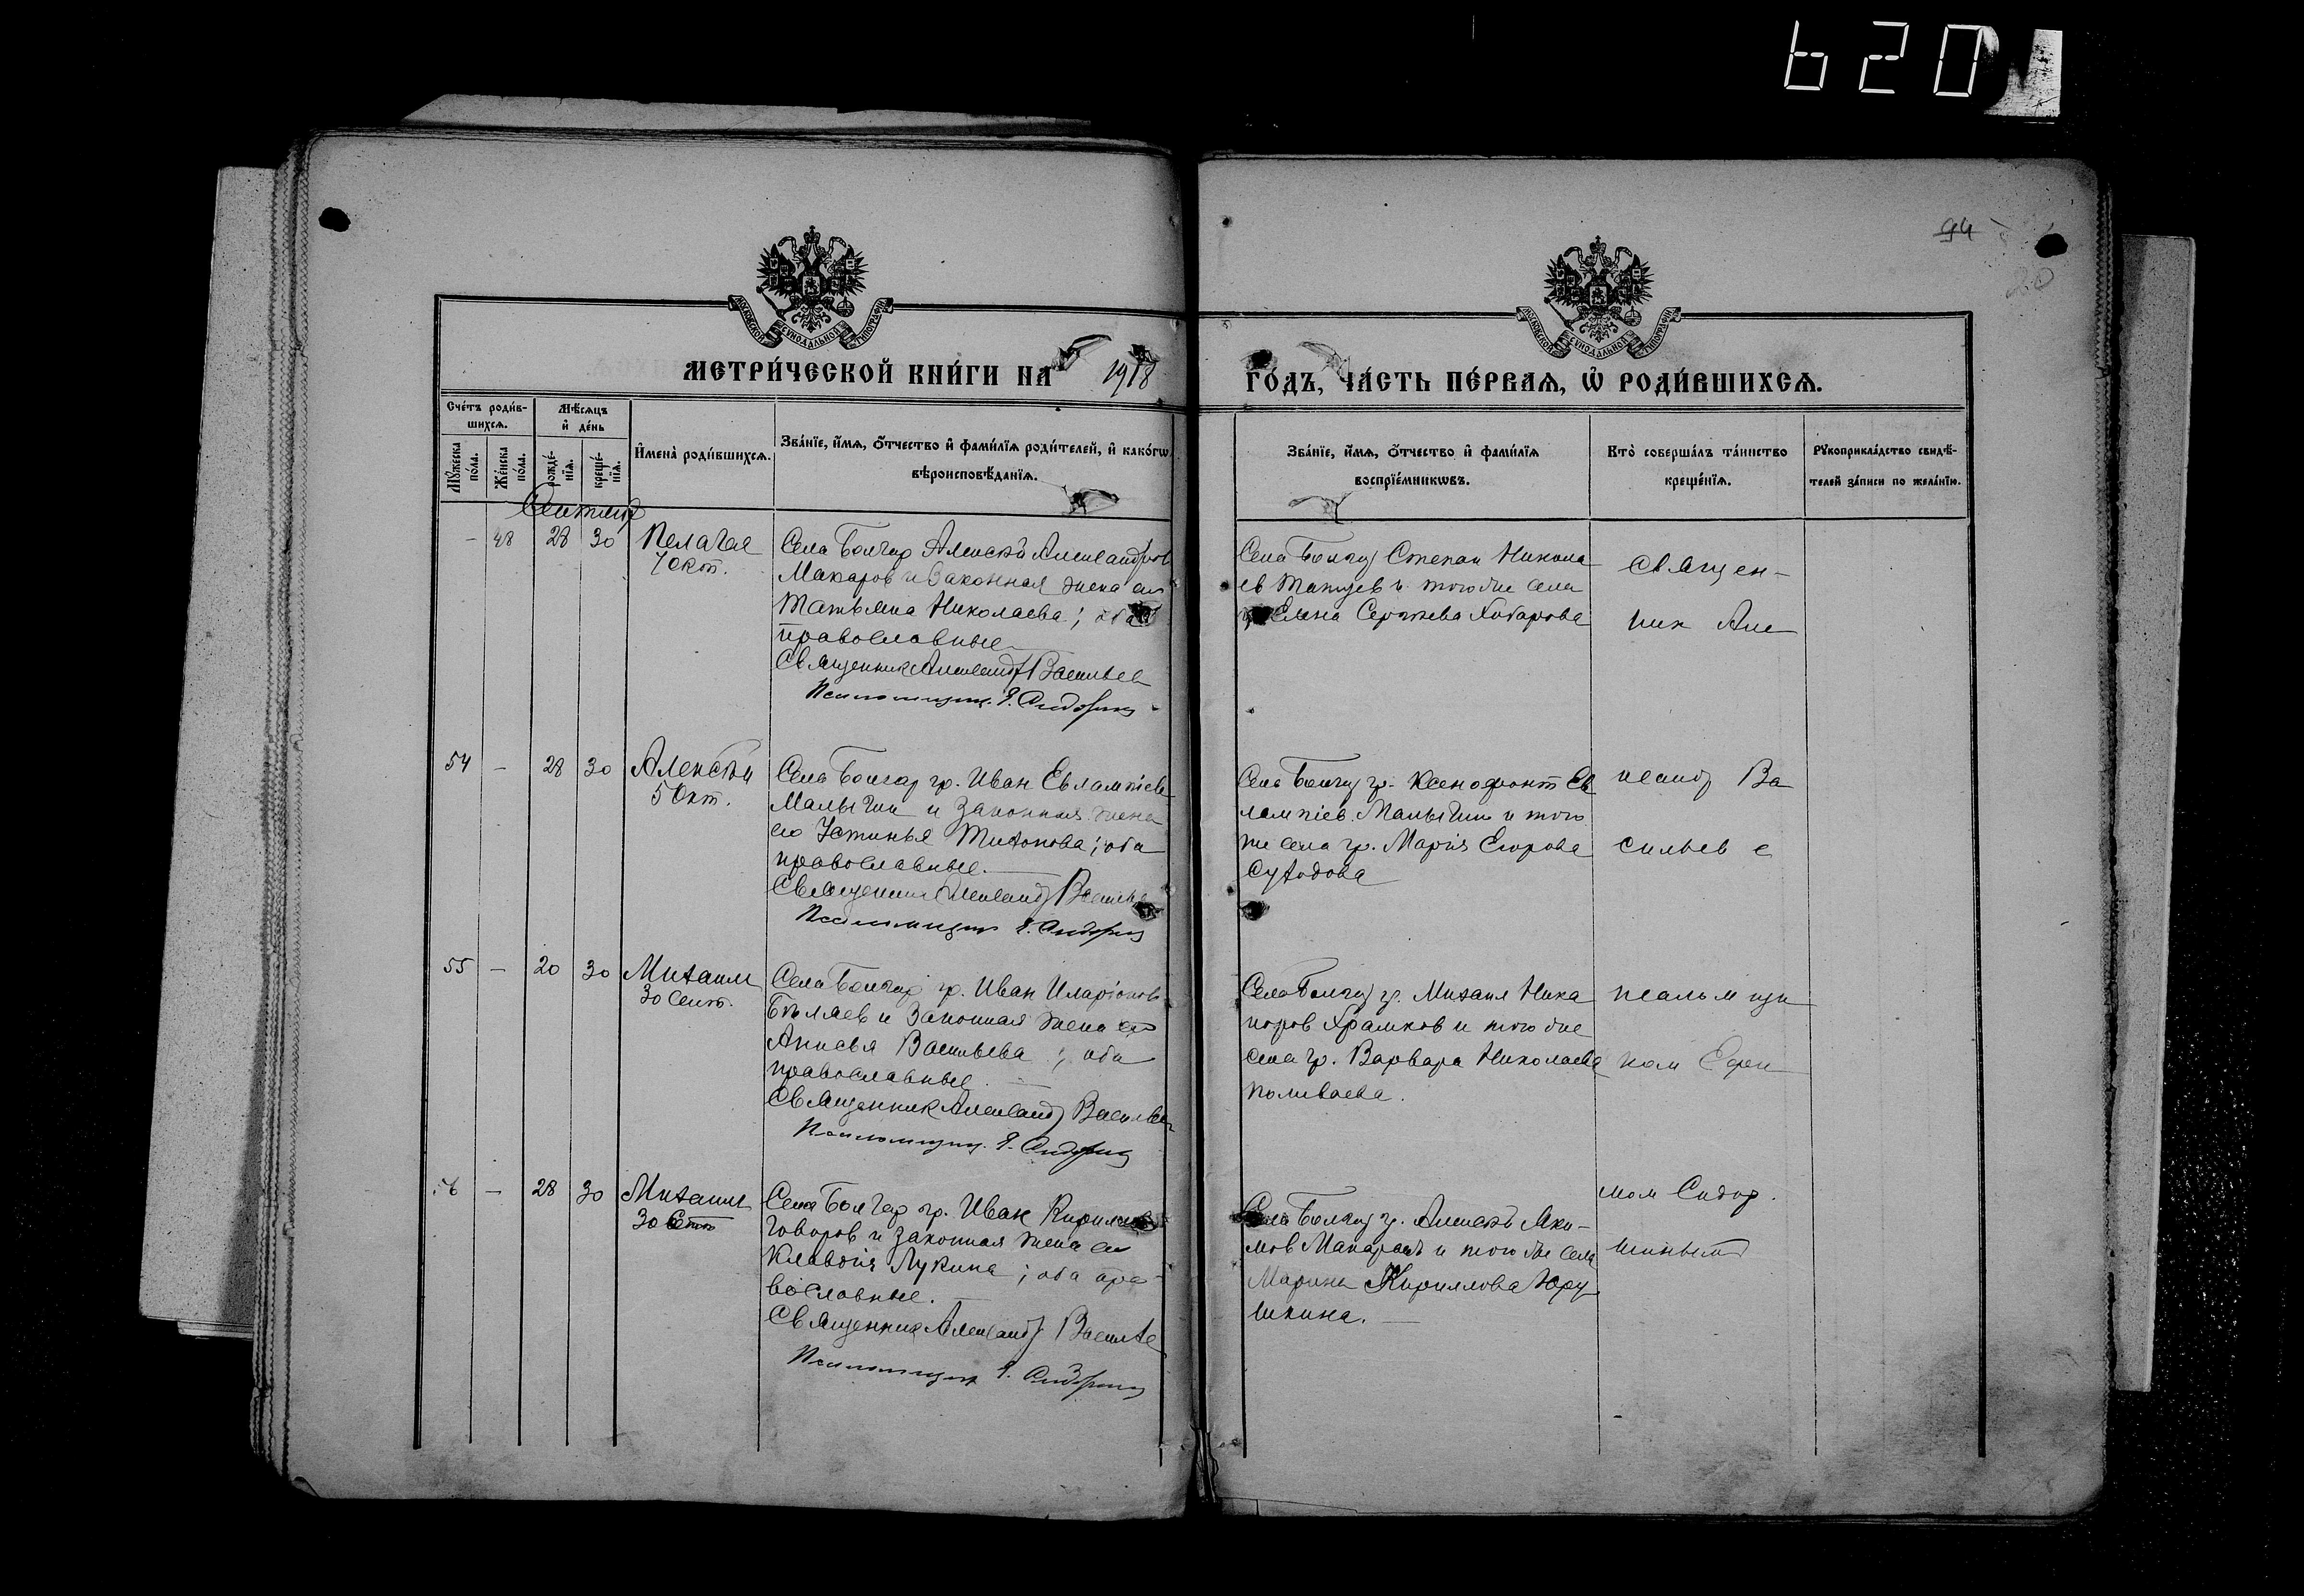 620
94
МОСКОВСКОЙ СѴНОДАЛЬНОЙ ТИПОГРАФІИ
МОСКОВСКОЙ СѴНОДАЛЬНОЙ ТИПОГРАФІИ
МЕТРИ́ЧЕСКОЙ КНИ́ГИ НА 1918 ГО́ДЪ, ЧА́СТЬ ПЕ́РВАѦ, Ѡ҆ РОДИ́ВШИХСѦ.
Сче́тъ роди́вшихсѧ.
Мꙋ́жеска по́ла.
Же́нска по́ла.
Мѣ́сѧцъ и҆ де́нь
рожде́нїѧ.
креще́нїѧ.
И҆мена̀ роди́вшихсѧ.
Зва́нїе, и҆́мѧ, ѻ҆́тчество и҆ фами́лїѧ роди́телей, и҆ како́гѡ
вѣроисповѣ́данїѧ.
Зва́нїе, и҆́мѧ, ѻ҆́тчество и҆ фами́лїѧ
воспрїе́мникѡвъ.
Кто̀ соверша́лъ та́инство
креще́нїѧ.
Рꙋкоприкла́дство свидѣ́-
телей за́писи по жела́нїю.
Сентябр
- 48 28 30 Пелагея
7 окт.
Села Болгар Алексѣй Александров
Макаров и законная жена его
Татьяна Николаева; оба
православные
Священник Александр Васильев
Псаломщик Е. Сидоркин
Села Болгар Степан Никола
ев и того же села
Елена Сергѣева Хабарова
54 - 28 30 Алексѣй
5 Окт.
Села Болгар гр. Иван Евлампіев
Малыгин и законная жена
его Устинья Тихонова; оба
православные.
Священник Александр Васильев
Псаломщик Е. Сидоркин
Села Болгар гр. Ксенофонт Ев
лампіев Малыгин и того
же села гр. Марія Егорова
Суходова
55 - 20 30 Михаил
30 Сент.
Села Болгар гр. Иван Иларіонов
Бѣляев и законная жена его
Анисья Васильева; оба
православные.
Священник Александр Васильев
Псаломщик Е. Сидоркин
Села Болгар гр. Михаил Ника
норов Храмков и того же
села гр. Варвара Николаева
Поливаева.
56 - 28 30 Михаил
30 Сент
Села Болгар гр. Иван Кирилов
Говоров и законная жена его
Клавдія Лукина; оба пра-
вославные.
Священник Александр Васильев
Псаломщик Е. Сидоркин
Села Болгар гр. Алексѣй Яки-
мов Макаров и того же села
Марина Кириллова Юру
шкина.
Священ-
ник Але
ксандр Ва
сильев с
псаломщи
ком Ефи
мом Сидор